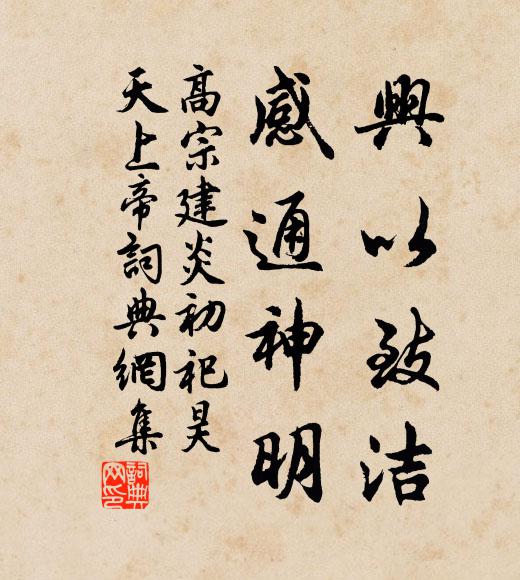 興以致洁
感通神明
高宗建炎初祀昊
天上帝詞典網集
詞典
网印